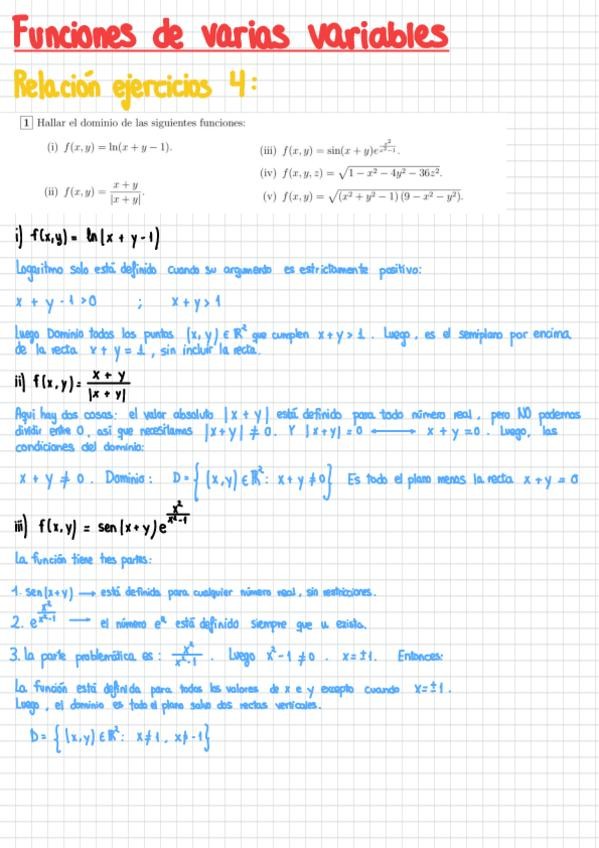 Funciones de varias variables
Relación ejercicios 4:
1 Hallar el dominio de las siguientes funciones:
(i) f(x, y) = ln(x + y − 1).
(ii) f(x, y) = x + y / |x + y|.
(iii) f(x, y) = sin(x + y)e^{x²/x²−1}.
(iv) f(x, y, z) = √(1 − x² − 4y² − 36z²).
(v) f(x, y) = √((x² + y² − 1)(9 − x² − y²)).
i) f(x,y) = ln(x + y -1)
Logaritmo solo está definido cuando su argumento es estrictamente positivo:
x + y - 1 > 0 ; x + y > 1
Luego Dominio todos los puntos (x,y) ∈ ℝ² que cumplen x + y > 1. Luego, es el semiplano por encima
de la recta x + y = 1, sin incluir la recta.
ii) f(x,y) = x + y / |x + y|
Aqui hay dos cosas: el valor absoluto |x + y| está definido para todo número real, pero NO podemos
dividir entre 0, asi que necesitamos |x+y| ≠ 0. Y |x+y| = 0 ⟷ x + y = 0. Luego, las
condiciones del dominio:
x + y ≠ 0. Dominio: D = { (x,y) ∈ ℝ²: x + y ≠ 0 } Es todo el plano menos la recta x + y = 0
iii) f(x,y) = sen(x+y)e^{x²/x²-1}
La función tiene tres partes:
1. sen(x+y) → está definida para cualquier número real, sin restricciones.
2. e^{x²/x²-1} → el número eᵘ está definido siempre que u exista.
3. la parte problemática es: x²/x²-1. Luego x²-1 ≠ 0. x = ±1. Entonces:
La función está definida para todos los valores de x e y excepto cuando x = ±1.
Luego, el dominio es todo el plano salvo dos rectas verticales.
D = { (x,y) ∈ ℝ²: x ≠ 1, x ≠ -1 }